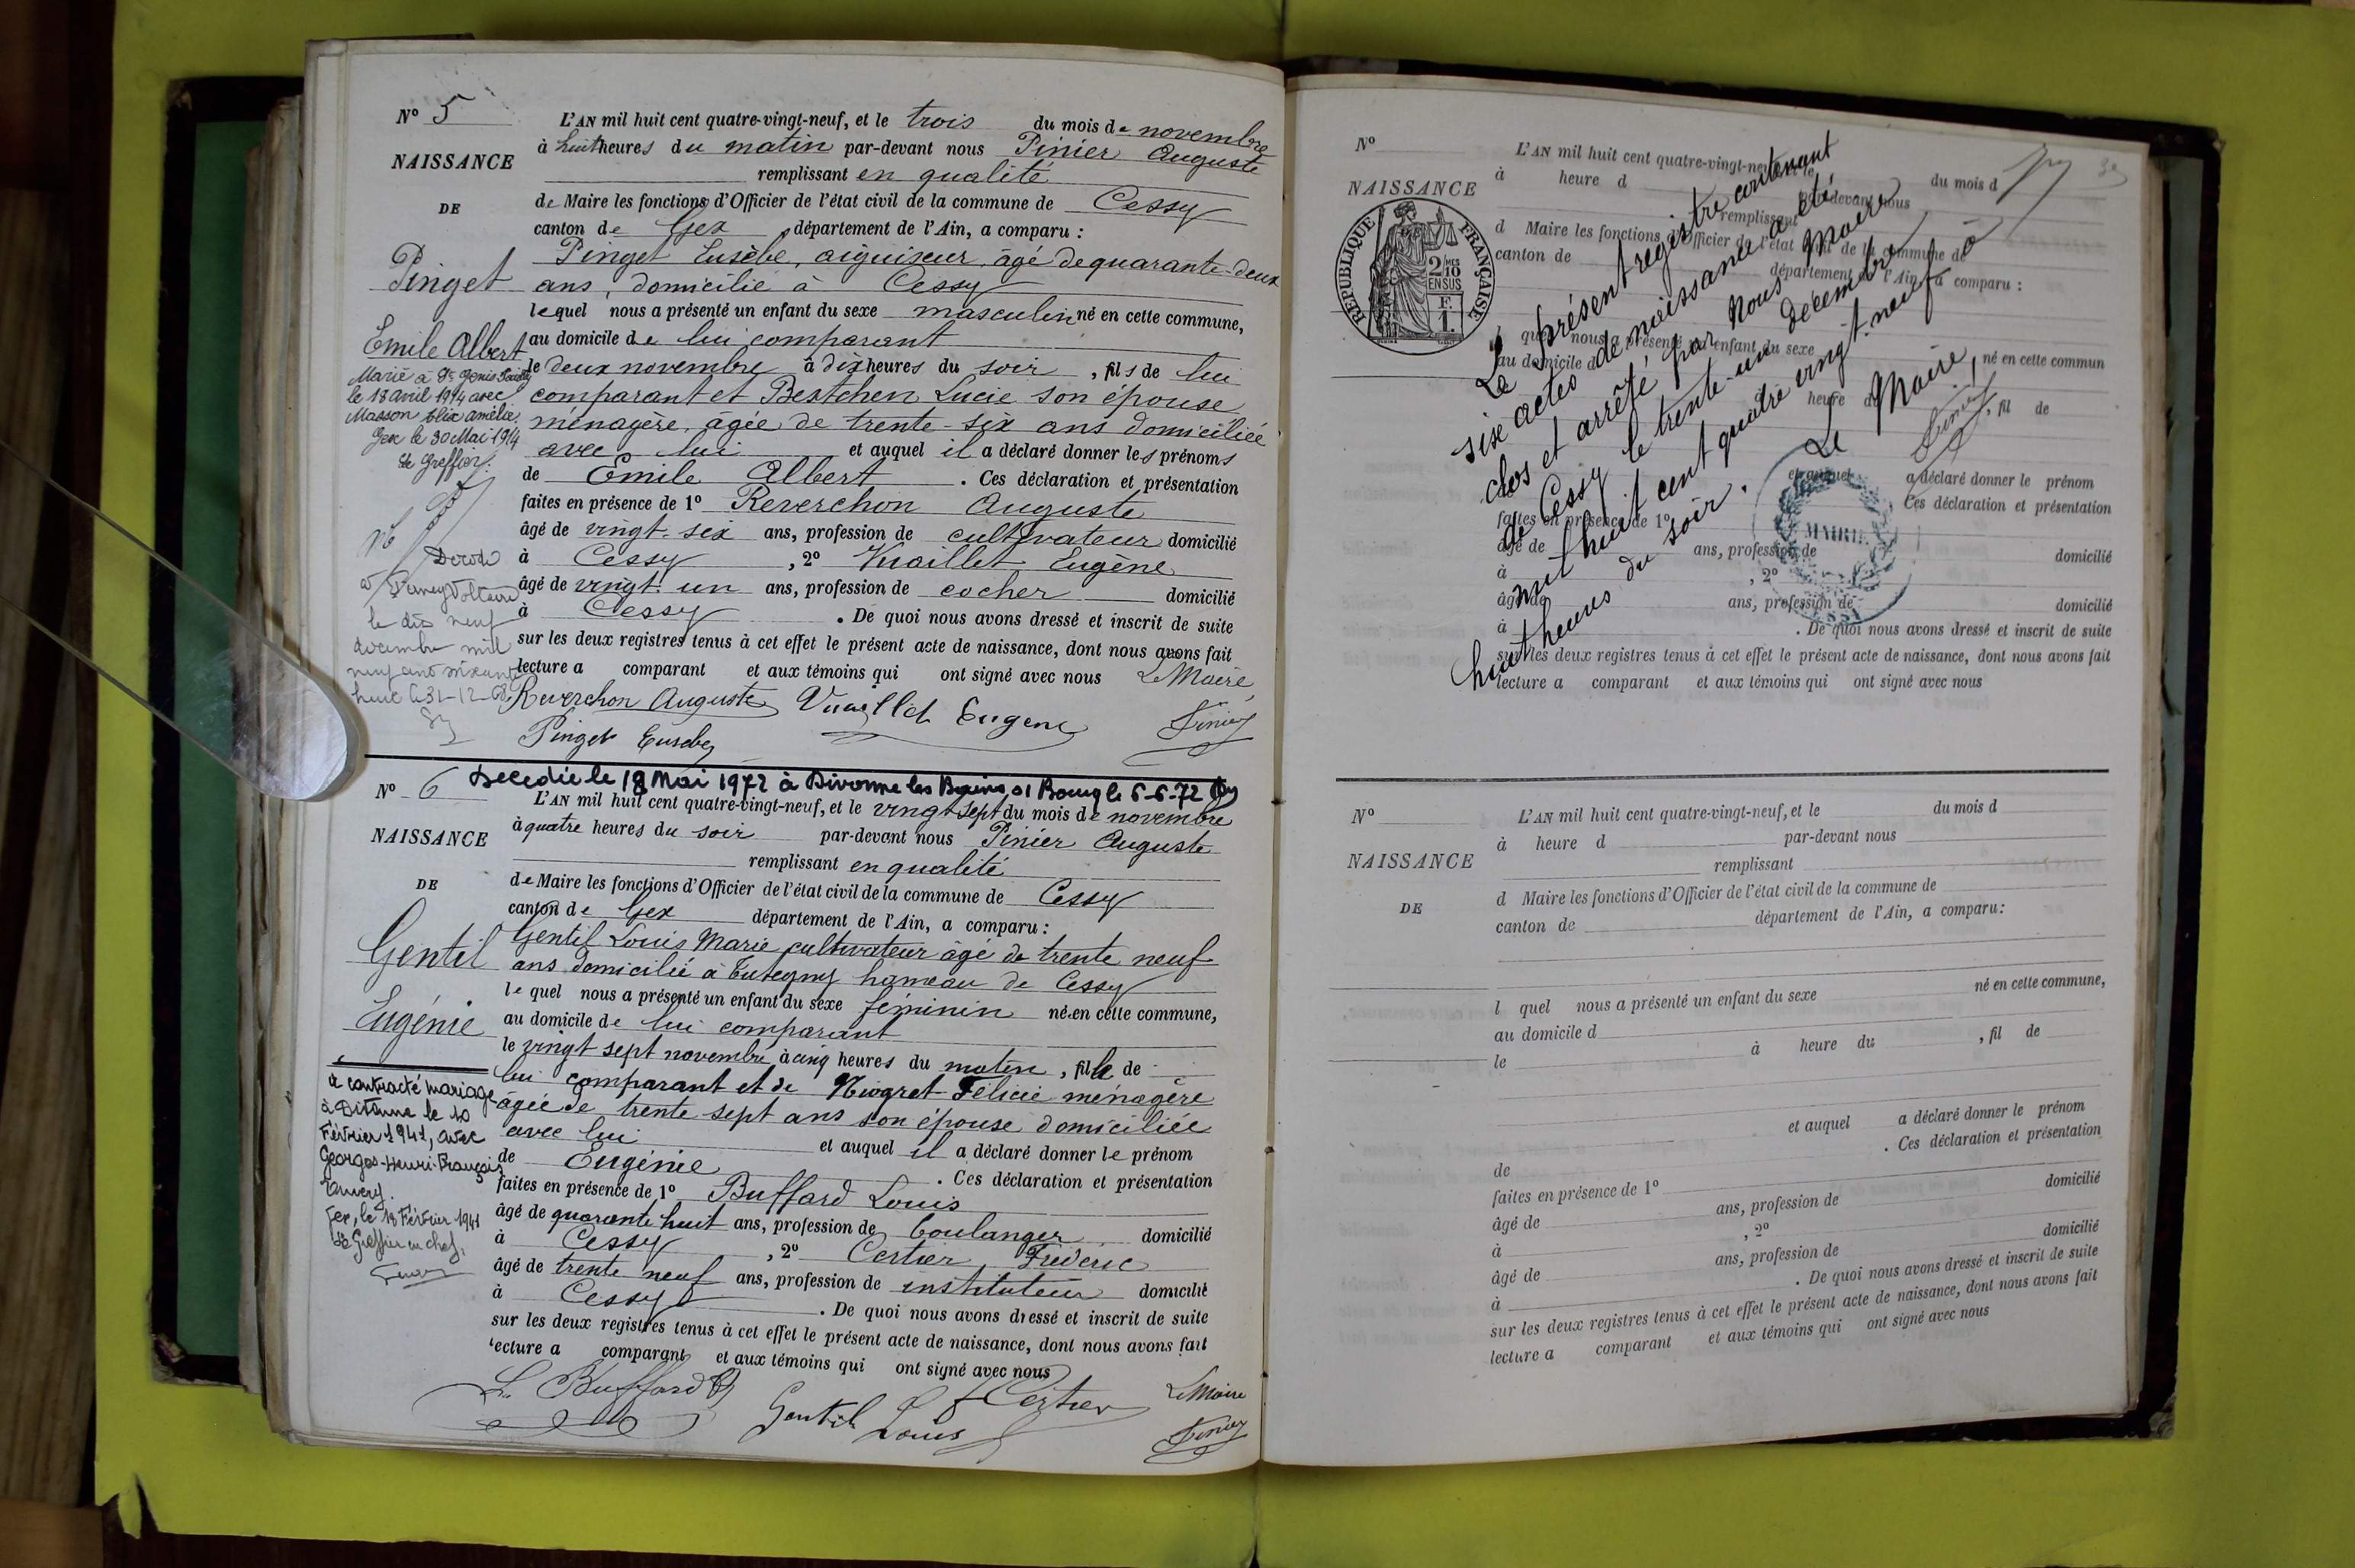 N° 5
NAISSANCE
DE
Pinget
Emile Albert
Marié à St Genis Pouilly
le 18 avril 1914 avec
Masson Elix Amélie
Gex le 30 Mai 1914
Le Greffier:
Décédé
à Ferney Voltaire
le dix neuf
décembre mil
neuf cent soixante
huit le 31-12-68
L'AN mil huit cent quatre-vingt-neuf, et le trois du mois de novembre
à huit heures du matin par-devant nous Pinier Auguste
remplissant en qualité
de Maire les fonctions d'Officier de l'état civil de la commune de Cessy
canton de Gex, département de l'Ain, a comparu :
Pinget Eusèbe, aiguiseur, âgé de quarante-deux
ans, domicilié à Cessy
lequel nous a présenté un enfant du sexe masculin né en cette commune,
au domicile de lui comparant
le deux novembre à dix heures du soir, fils de lui
comparant et Bestchen Lucie son épouse
ménagère, âgée de trente-six ans domiciliée
avec lui et auquel il a déclaré donner les prénoms
de Emile Albert. Ces déclaration et présentation
faites en présence de 1° Reverchon Auguste
âgé de vingt-six ans, profession de cultivateur domicilié
à Cessy, 2° Vuaillet Eugène
âgé de vingt-un ans, profession de cocher domicilié
à Cessy. De quoi nous avons dressé et inscrit de suite
sur les deux registres tenus à cet effet le présent acte de naissance, dont nous avons fait
lecture a comparant et aux témoins qui ont signé avec nous Le Maire,
Reverchon Auguste Vuaillet Eugene Pinier
Pinget Eusebe
N° 6 Decedée le 18 Mai 1972 à Divonne les Bains 01 Bourg le 6-6-72
NAISSANCE
DE
Gentil
Eugénie
a contracté mariage
à Divonne le 10
Février 1941, avec
Georges-Henri-François
Gex, le 18 Février 1941
Le Greffier en chef,
L'AN mil huit cent quatre-vingt-neuf, et le vingt sept du mois de novembre
à quatre heures du soir par-devant nous Pinier Auguste
remplissant en qualité
de Maire les fonctions d'Officier de l'état civil de la commune de Cessy
canton de Gex département de l'Ain, a comparu :
Gentil Louis Marie cultivateur âgé de trente neuf
ans domicilié à Tutegny hameau de Cessy
le quel nous a présenté un enfant du sexe féminin né en cette commune,
au domicile de lui comparant
le vingt sept novembre à cinq heures du matin, fille de
lui comparant et de Niogret Félicie ménagère
âgée de trente sept ans son épouse domiciliée
avec lui et auquel il a déclaré donner le prénom
de Eugénie. Ces déclaration et présentation
faites en présence de 1° Buffard Louis
âgé de quarante huit ans, profession de boulanger domicilié
à Cessy, 2° Certier Frederic
âgé de trente neuf ans, profession de instituteur domicilié
à Cessy. De quoi nous avons dressé et inscrit de suite
sur les deux registres tenus à cet effet le présent acte de naissance, dont nous avons fait
lecture a comparant et aux témoins qui ont signé avec nous
L. Buffard Gentil Louis F Certier Le Maire
Pinier
N°
NAISSANCE
RÉPUBLIQUE FRANÇAISE
2/10 MES EN SUS
F. 1.
L'AN mil huit cent quatre-vingt-neuf, et le du mois d
à heure d par-devant nous
remplissant
d Maire les fonctions d'Officier de l'état civil de la commune de
canton de département de l'Ain, a comparu :
l quel nous a présenté un enfant du sexe né en cette commun
au domicile d
heure du , fil de
et auquel a déclaré donner le prénom
Ces déclaration et présentation
faites en présence de 1°
âgé de ans, profession de domicilié
à , 2°
âgé de ans, profession de domicilié
à . De quoi nous avons dressé et inscrit de suite
sur les deux registres tenus à cet effet le présent acte de naissance, dont nous avons fait
lecture a comparant et aux témoins qui ont signé avec nous
Le présent registre contenant
six actes de naissance a été
clos et arrêté par Nous Maire
de Cessy le trente-un décembre
mil huit cent quatre vingt-neuf à
huit heures du soir.
Le Maire,
Pinier
MAIRIE
CESSY
N°
NAISSANCE
DE
L'AN mil huit cent quatre-vingt-neuf, et le du mois d
à heure d par-devant nous
remplissant
d Maire les fonctions d'Officier de l'état civil de la commune de
canton de département de l'Ain, a comparu:
l quel nous a présenté un enfant du sexe né en cette commune,
au domicile d
le à heure du , fil de
et auquel a déclaré donner le prénom
de . Ces déclaration et présentation
faites en présence de 1°
âgé de ans, profession de domicilié
à , 2°
âgé de ans, profession de domicilié
à . De quoi nous avons dressé et inscrit de suite
sur les deux registres tenus à cet effet le présent acte de naissance, dont nous avons fait
lecture a comparant et aux témoins qui ont signé avec nous